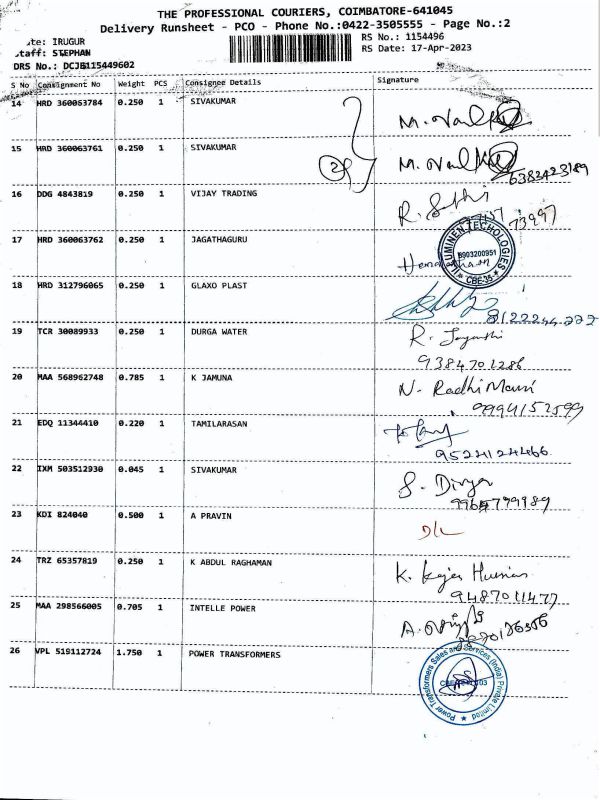 THE PROFESSIONAL COURIERS, COIMBATORE-641045
Delivery Runsheet - PCO - Phone No.:0422-3505555 - Page No.:2
te: IRUGUR
RS No.: 1154496
taff: STEPHAN
RS Date: 17-Apr-2023
DRS No.: DCJB115449602
S No Consignment No Weight PCS Consignee Details Signature
14 HRD 360063784 0.250 1 SIVAKUMAR
15 HRD 360063761 0.250 1 SIVAKUMAR
6382423189
16 DDG 4843819 0.250 1 VIJAY TRADING
73997
17 HRD 360063762 0.250 1 JAGATHAGURU
ILLUMINEN TECHOLOGIES
8903200951
CBE-35
18 HRD 312796065 0.250 1 GLAXO PLAST
8122244222
19 TCR 30089933 0.250 1 DURGA WATER R. Jayanthi
9384701286
20 MAA 568962748 0.785 1 K JAMUNA N. Radhi Mani
9994152599
21 EDQ 11344410 0.220 1 TAMILARASAN
9524124466
22 IXM 503512930 0.045 1 SIVAKUMAR S. Divya
23 KDI 824040 0.500 1 A PRAVIN D/L
24 TRZ 65357819 0.250 1 K ABDUL RAGHAMAN K.
9487011477
25 MAA 298566005 0.705 1 INTELLE POWER
26 VPL 519112724 1.750 1 POWER TRANSFORMERS
Power Transformers Sales and Services (India) Private Limited